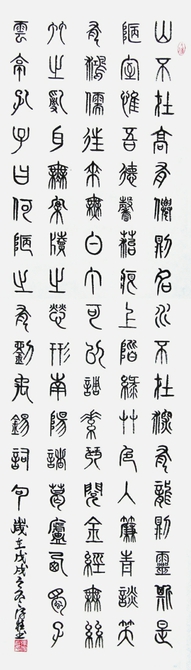 山不在高有僊則名水不在深有龍則靈斯是
陋室惟吾德馨苔痕上階綠艸色入簾青談笑
有鴻儒往來無白丁可以調素琴閱金經無絲
竹之亂耳無案牘之勞形南陽諸葛廬西蜀子
雲亭孔子曰何陋之有劉禹錫詞句 歲在戊戌